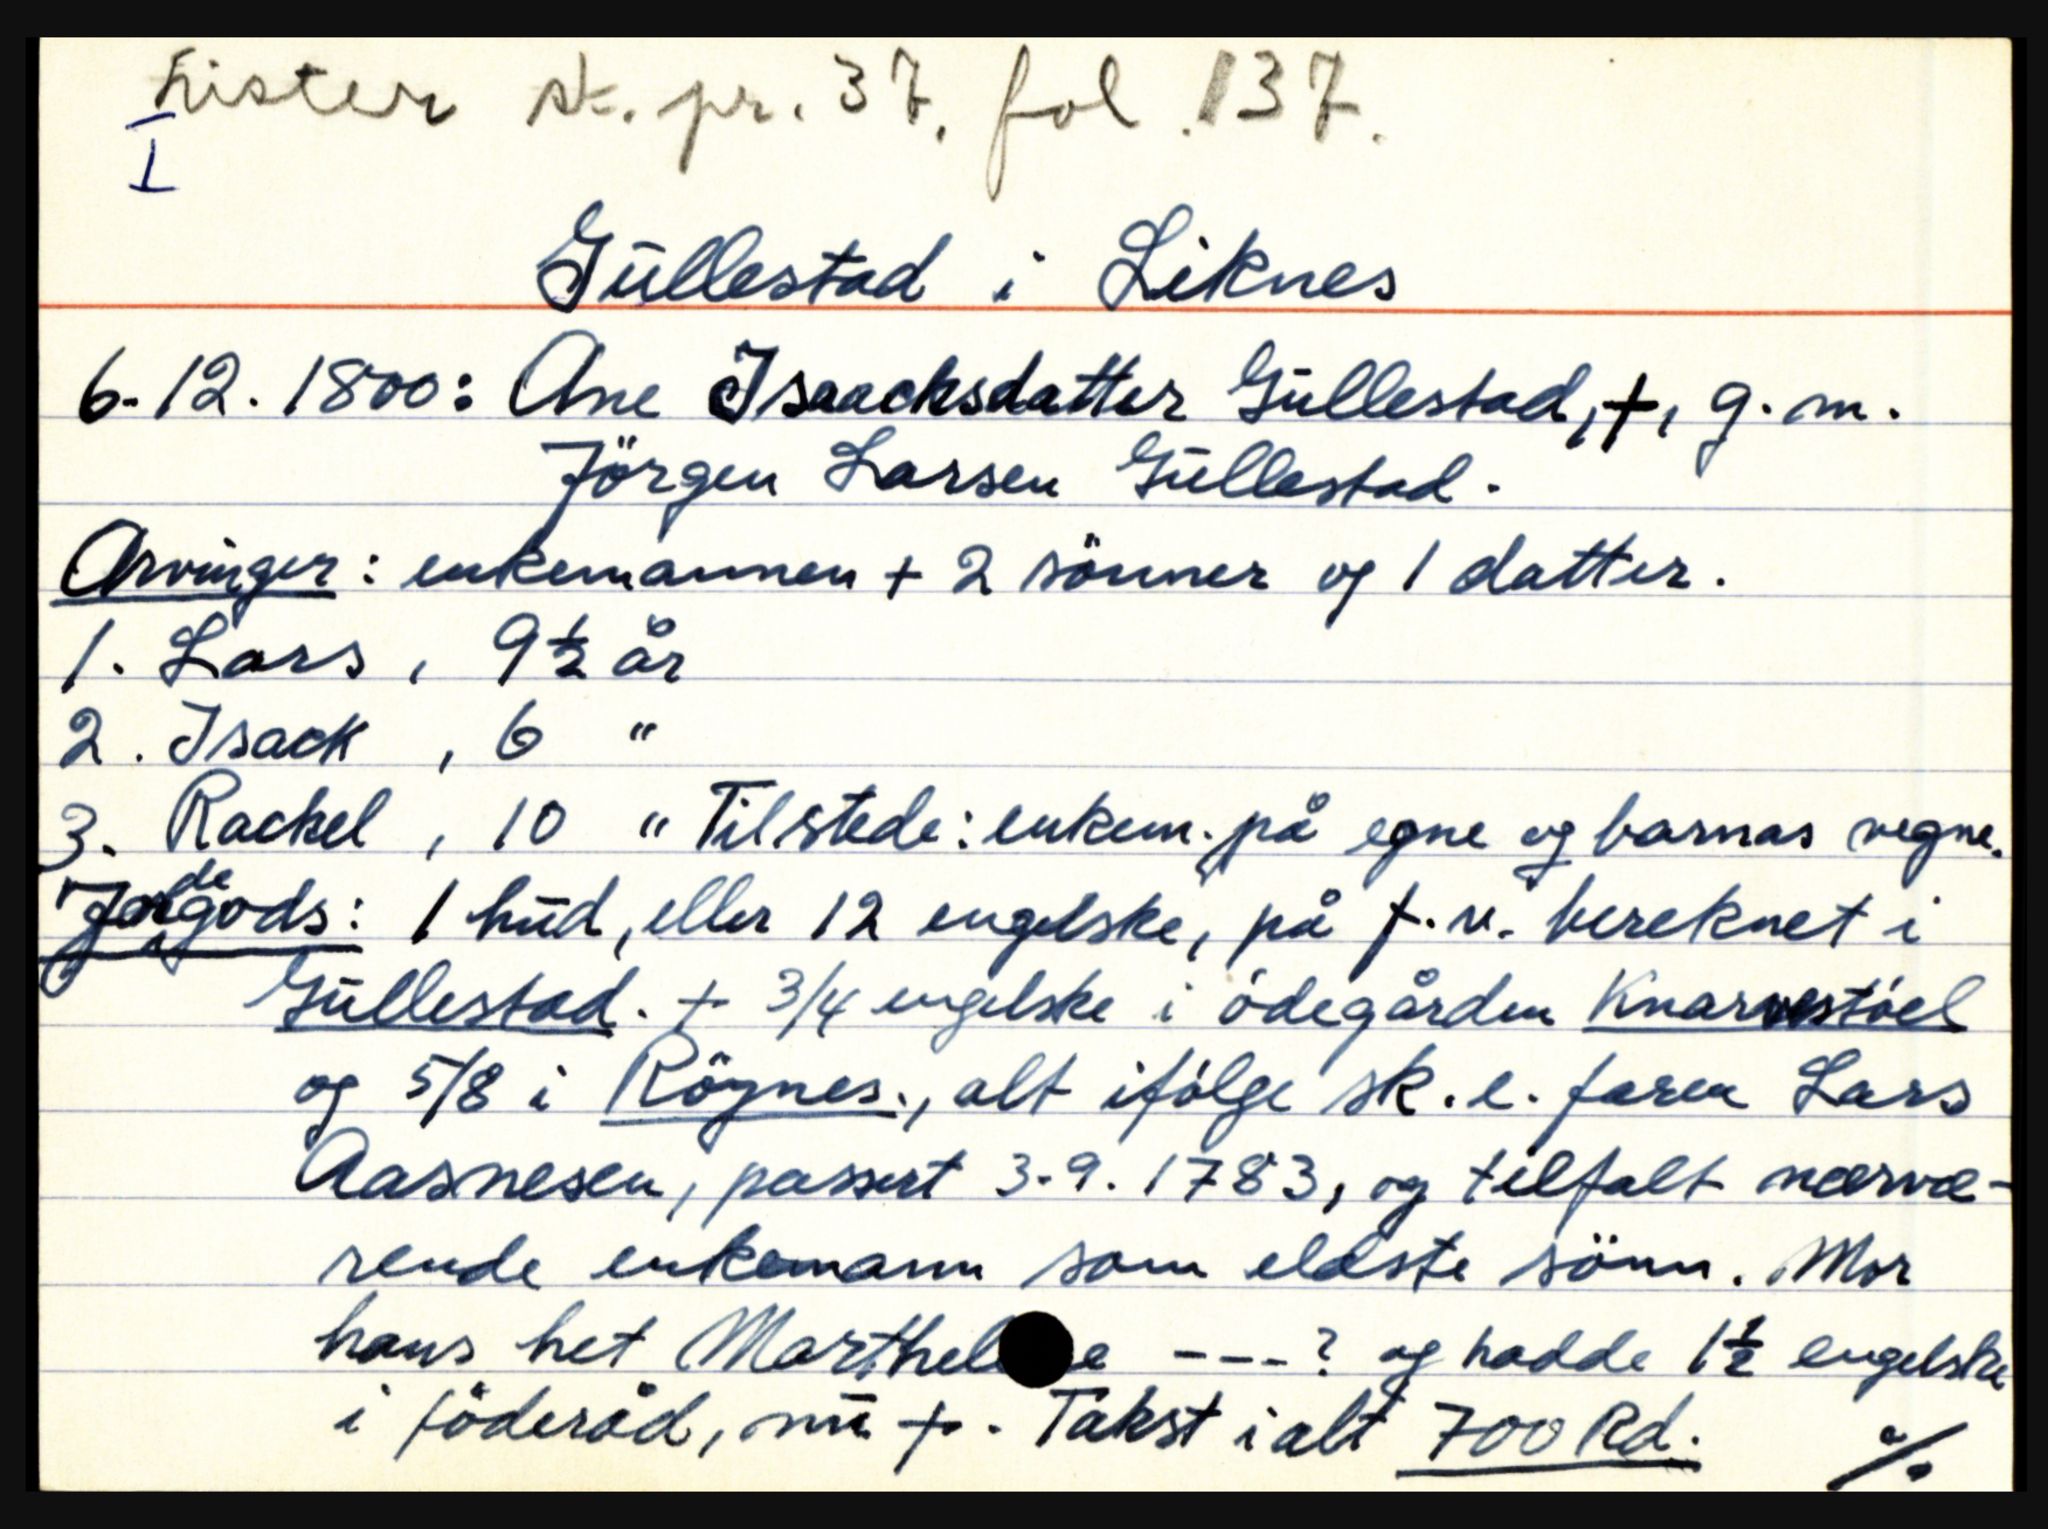 Lister sk. pr. 37. fol. 137.
I
Gullestad i Liknes
6.12.1800: Ane Isaacksdatter Gullestad, †, g. m.
Jörgen Larsen Gullestad.
Arvinger: enkemannen + 2 sönner og 1 datter.
1. Lars, 9½ år
2. Isack, 6 "
3. Rackel, 10 " Tilstede: enkem. på egne og barnas vegne.
Jordegods: 1 hud, eller 12 engelske, på f. v. bereknet i
Gullestad. + 3/4 engelske i ödegården Knarvestöel
og 5/8 i Röynes., alt ifölge sk. e. faren Lars
Aasnesen, passert 3.9.1783, og tilfalt nærvæ-
rende enkemann som eldste sönn. Mor
hans het Marthe ---? og hadde 1½ engelske
i föderåd, nu †. Takst ialt 700 Rd.
%